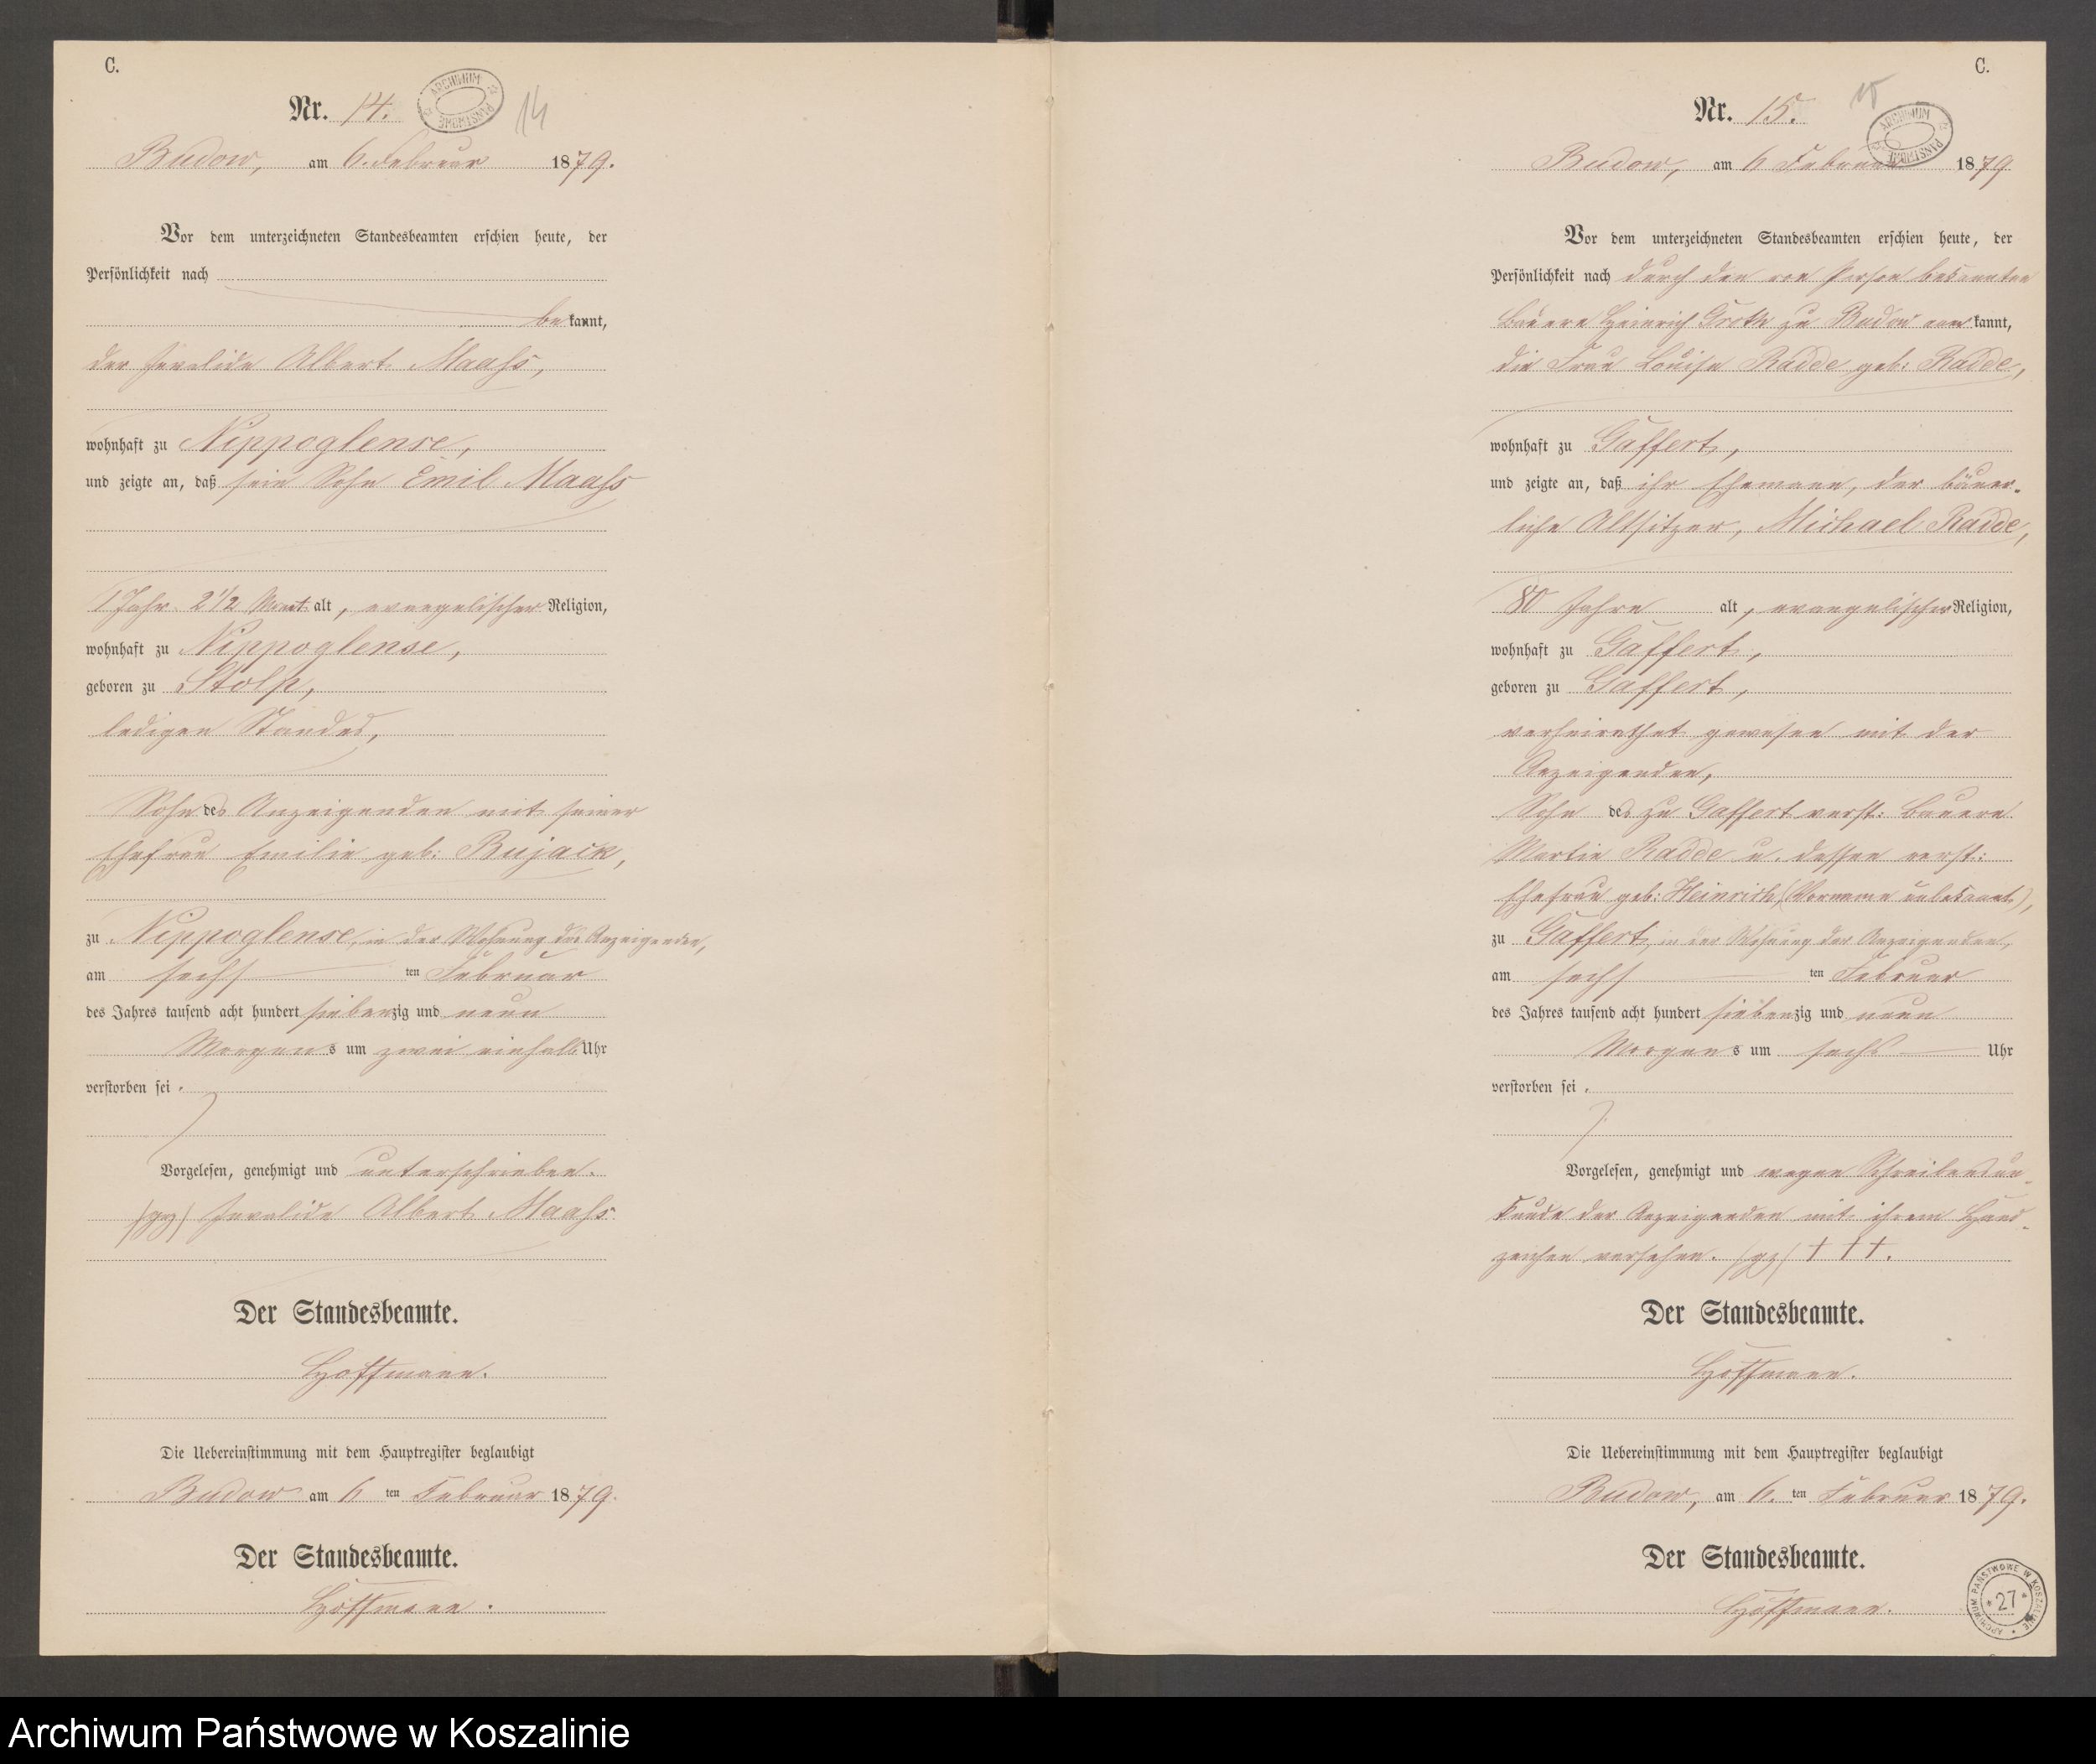 C.
Nr. 14.
ARCHIWUM PAŃSTWOWE
14
Budow, am 6. Februar 1879.
Vor dem unterzeichneten Standesbeamten erschien heute, der
Persönlichkeit nach
bekannt,
der Invalide Albert Maahs,
wohnhaft zu Nippoglense,
und zeigte an, daß sein Sohn Emil Maahs
1 Jahr 2 1/2 Monat alt, evangelischer Religion,
wohnhaft zu Nippoglense,
geboren zu Stolp,
ledigen Standes,
Sohn des Anzeigenden mit seiner
Ehefrau Emilie geb: Bujack,
zu Nippoglense, in der Wohnung des Anzeigenden,
am sechsten Februar
des Jahres tausend acht hundert siebenzig und neun
Morgens um zwei einhalb Uhr
verstorben sei.
Vorgelesen, genehmigt und unterschrieben.
(gz) Invalide Albert Maahs.
Der Standesbeamte.
Hoffmann.
Die Uebereinstimmung mit dem Hauptregister beglaubigt
Budow am 6ten Februar 1879.
Der Standesbeamte.
Hoffmann.
C.
Nr. 15.
15
ARCHIWUM PAŃSTWOWE
Budow, am 6 Februar 1879
Vor dem unterzeichneten Standesbeamten erschien heute, der
Persönlichkeit nach durch den von Person bekannten
Bauern Heinrich Groth zu Budow anerkannt,
die Frau Louise Radde geb: Radde,
wohnhaft zu Gaffert,
und zeigte an, daß ihr Ehemann, der bäuer-
liche Altsitzer, Michael Radde,
80 Jahre alt, evangelischer Religion,
wohnhaft zu Gaffert,
geboren zu Gaffert,
verheirathet gewesen mit der
Anzeigenden,
Sohn des zu Gaffert verst: Bauern
Martin Radde u. dessen verst:
Ehefrau geb: Heinrich, (Vorname unbekannt),
zu Gaffert, in der Wohnung der Anzeigenden,
am sechsten Februar
des Jahres tausend acht hundert siebenzig und neun
Morgens um sechs Uhr
verstorben sei.
Vorgelesen, genehmigt und wegen Schreibensun-
kunde der Anzeigenden mit ihrem Hand-
zeichen versehen. (gz) † † †.
Der Standesbeamte.
Hoffmann.
Die Uebereinstimmung mit dem Hauptregister beglaubigt
Budow, am 6.ten Februar 1879.
Der Standesbeamte.
Hoffmann.
ARCHIWUM PAŃSTWOWE W KOSZALINIE
*27*
Archiwum Państwowe w Koszalinie